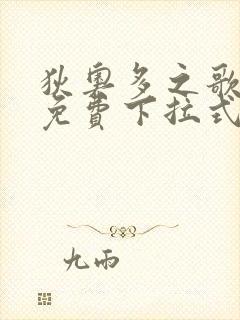 狄奧多之歌
免費下拉式
九雨